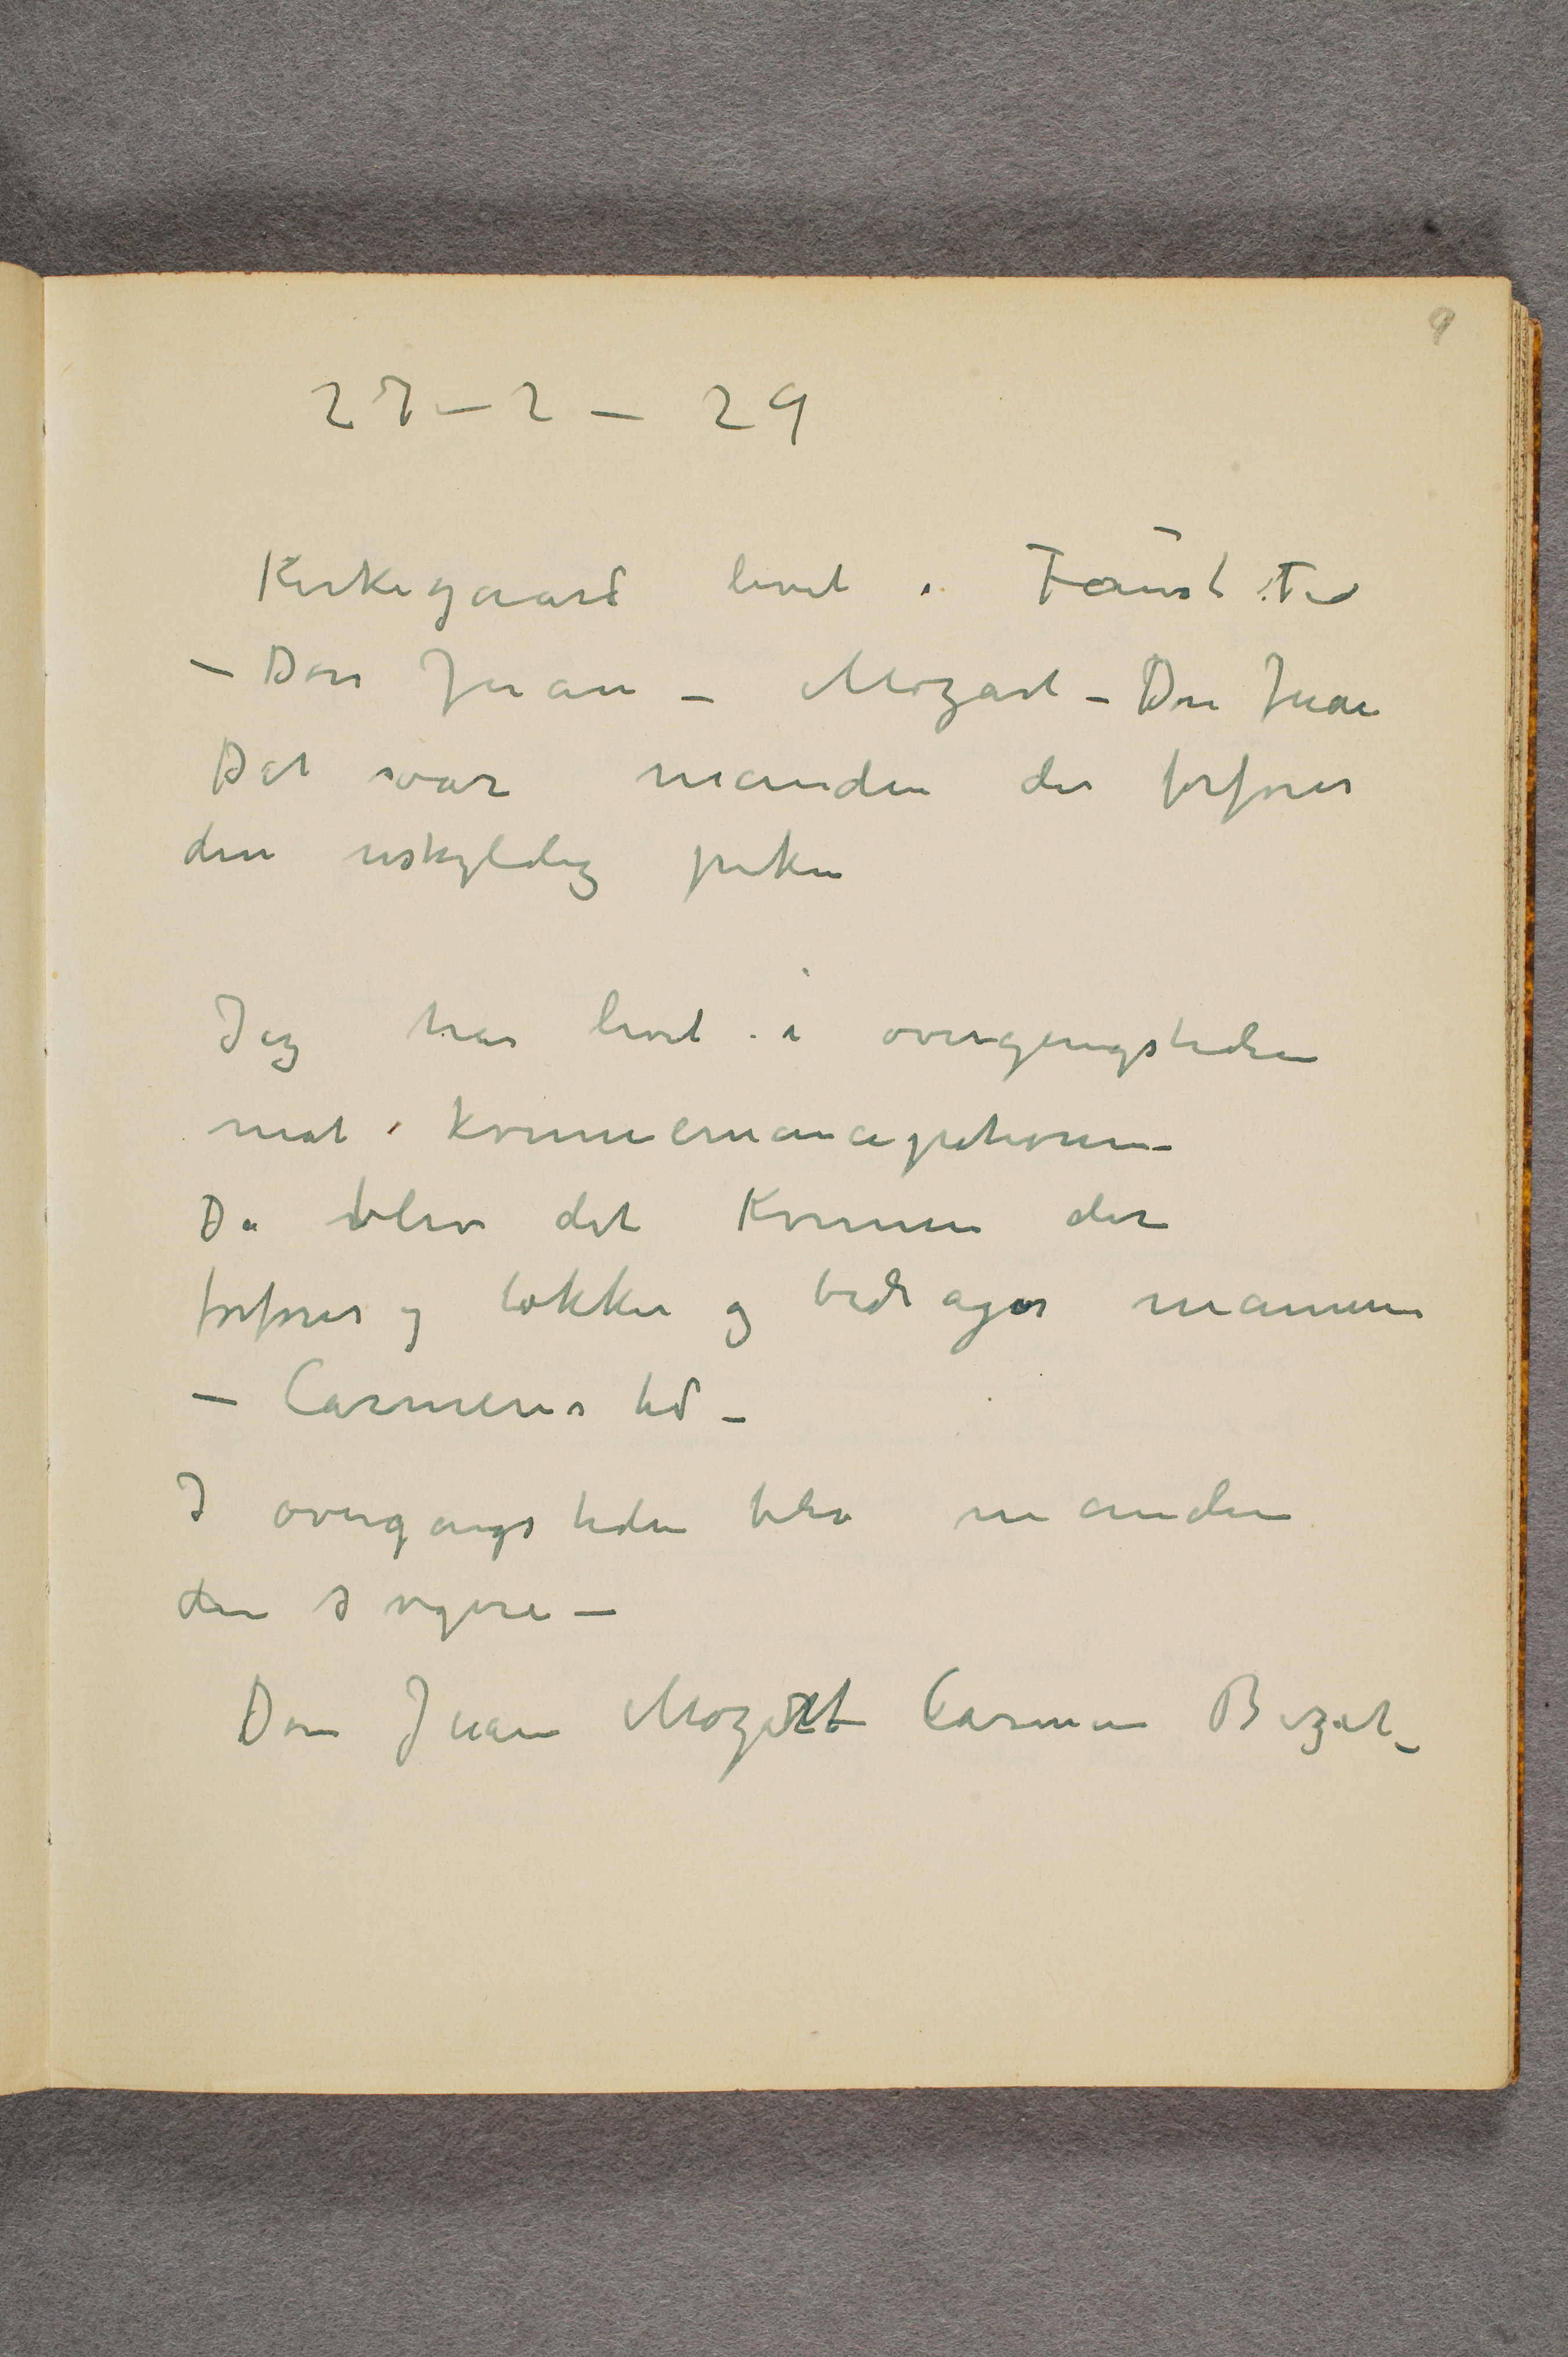 9
27 – 2 – 29
Kirkegaard levet i Faust Tid
– Don Juan – Mozart – Don Juan
Det var manden der forfører
den uskyldig piken
Jeg har levet i overgangstiden
mot kvinneemancipationen –
Da blev det Kvinnen der
forfører og lokker og bedrager mannen
– Carmens tid –
I overgangstiden blev manden
den svagere –
Don Juan Mozart Carmen Bizet –